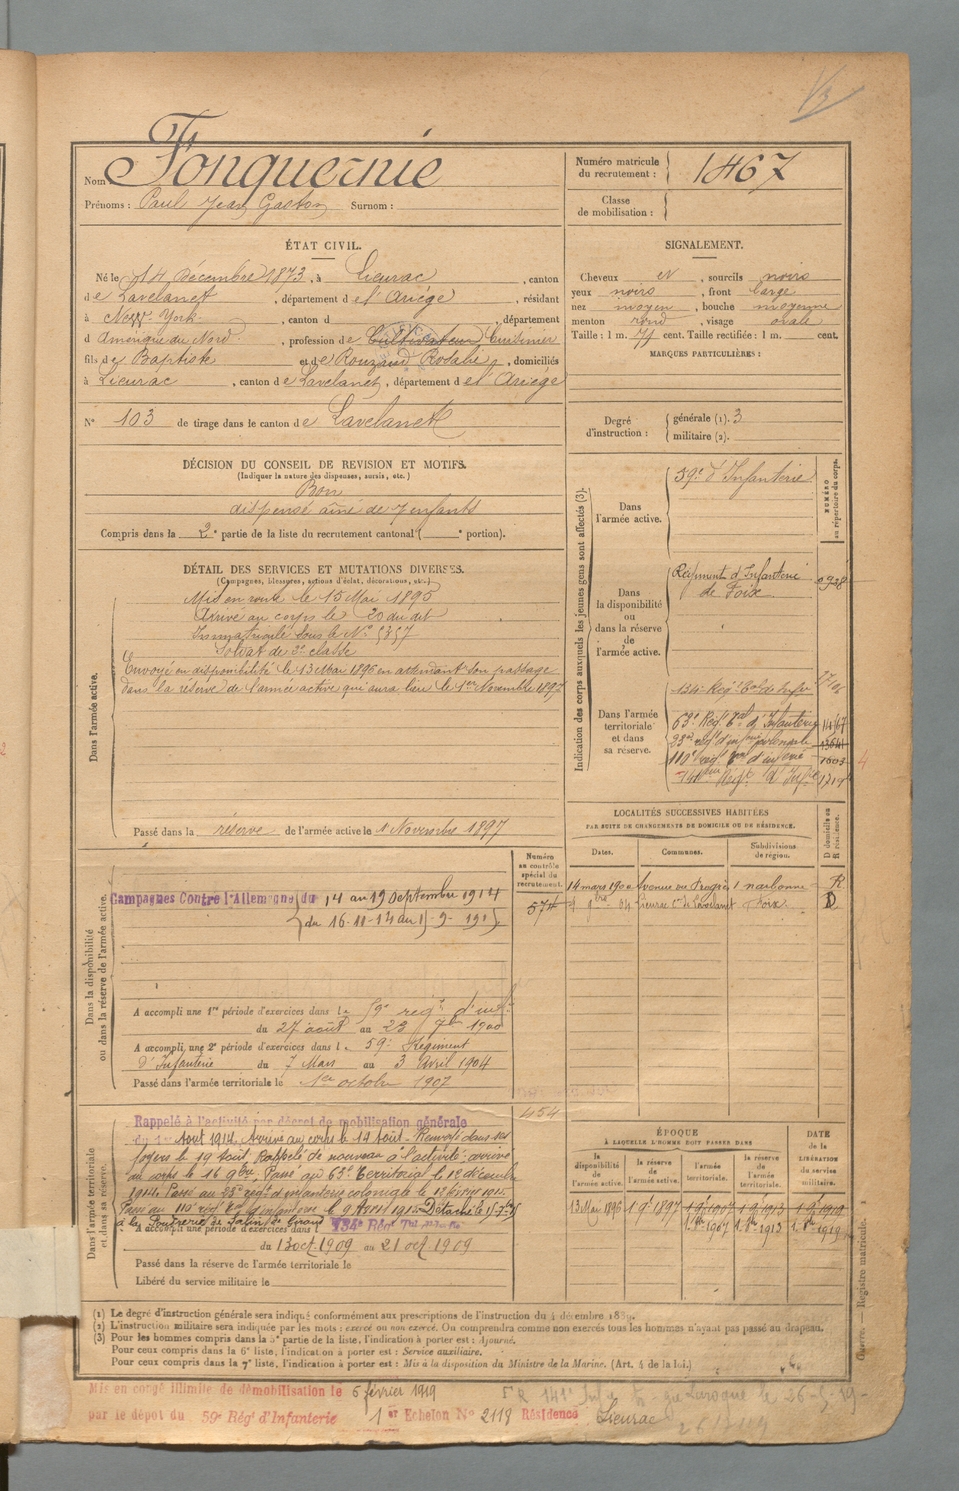 Nom : Fonquernie
Prénoms : Paul Jean Gaston Surnom :
Numéro matricule du recrutement : 1467
Classe de mobilisation :
ÉTAT CIVIL.
Né le 14 Décembre 1873, à Lieurac, canton
de Lavelanet, département de l'Ariège, résidant
à New-York, canton d , département
d Amérique du Nord, profession de Cultivateur Cuisinier
fils de Baptiste et de Rouzaud Rosalie, domiciliés
à Lieurac, canton de Lavelanet, département de l'Ariège
N° 103 de tirage dans le canton de Lavelanet
SIGNALEMENT.
Cheveux et , sourcils noirs
yeux noirs , front large
nez moyen , bouche moyenne
menton rond , visage ovale
Taille : 1 m. cent. Taille rectifiée : 1 m. cent.
MARQUES PARTICULIÈRES :
Degré d'instruction : générale (1). 3
militaire (2).
DÉCISION DU CONSEIL DE REVISION ET MOTIFS.
(Indiquer la nature des dispenses, sursis, etc.)
Bon
dispensé aîné de 7 enfants
Compris dans la 2e partie de la liste du recrutement cantonal ( e portion).
DÉTAIL DES SERVICES ET MUTATIONS DIVERSES.
(Campagnes, blessures, actions d'éclat, décorations, etc.)
Dans l'armée active.
Mis en route le 15 Mai 1895
Arrivé au corps le 20 du dit
Immatriculé sous le N° 5357
Soldat de 2e classe
Envoyé en disponibilité le 13 Mai 1896 en attendant son passage
dans la réserve de l'armée active qui aura lieu le 1er Novembre 1897
Passé dans la réserve de l'armée active le 1 Novembre 1897
Indication des corps auxquels les jeunes gens sont affectés (3).
NUMÉRO au répertoire du corps.
Dans l'armée active.
59e d'Infanterie
Dans la disponibilité ou dans la réserve de l'armée active.
Régiment d'Infanterie
de Foix
Dans l'armée territoriale et dans sa réserve.
134e Régt Tal d'Infie
63e Régt Tal d'Infanterie 1467
23e régt d'infie coloniale 13641
110e régt Tal d'infie 1603
141ème Régt d'Infie 1719
LOCALITÉS SUCCESSIVES HABITÉES
PAR SUITE DE CHANGEMENTS DE DOMICILE OU DE RÉSIDENCE.
Dates. Communes. Subdivisions de région. D domicile ou R résidence.
14 mars 1900 narbonne R
04 Lieurac Con de Lavelanet Foix D
Dans la disponibilité ou dans la réserve de l'armée active.
Numéro au contrôle spécial du recrutement.
574
Campagnes Contre l'Allemagne du 14 au 19 Septembre 1914
A accompli une 1re période d'exercices dans le 59e régt d'infie
du 27 août au 23 7bre 1900
A accompli une 2e période d'exercices dans le 59e Régiment
d'Infanterie du 7 Mars au 3 Avril 1904
Passé dans l'armée territoriale le 1er octobre 1907
454
Dans l'armée territoriale et dans sa réserve.
Rappelé à l'activité par décret de mobilisation générale
du 1er Aout 1914. Arrivé au corps le 14 Aout. Renvoyé dans ses
foyers le 19 Aout. Rappelé de nouveau à l'activité; arrivé
au corps le 16 9bre. Passé au 63e Territorial le 12 décembre
1914. Passé au 23e régt d'infanterie coloniale le 12 février 1915.
Passé au 110e régt Tal d'infanterie le 9 Avril 1915. Détaché le
à la Poudrerie de Salin de Giraud 134e Régt Tal
A accompli une période d'exercices dans l
du 13 oct. 1909 au 21 oct 1909
Passé dans la réserve de l'armée territoriale le
Libéré du service militaire le
ÉPOQUE
À LAQUELLE L'HOMME DOIT PASSER DANS
DATE de la LIBÉRATION du service militaire.
la disponibilité de l'armée active. la réserve de l'armée active. l'armée territoriale. la réserve de l'armée territoriale.
13 Mai 1896 1 9e 1897 1 9e 1907 1 9e 1913 1 9e 1919
1. 8re 1907 1. 8re 1913 1. 8re 1919
(1) Le degré d'instruction générale sera indiqué conformément aux prescriptions de l'instruction du 4 décembre 1889.
(2) L'instruction militaire sera indiquée par les mots : exercé ou non exercé. On comprendra comme non exercés tous les hommes n'ayant pas passé au drapeau.
(3) Pour les hommes compris dans la 5e partie de la liste, l'indication à porter est : Ajourné.
Pour ceux compris dans la 6e liste, l'indication à porter est : Service auxiliaire.
Pour ceux compris dans la 7e liste, l'indication à porter est : Mis à la disposition du Ministre de la Marine. (Art. 4 de la loi.)
Guerre. — Registre matricule.
Mis en congé illimité de démobilisation le 5 février 1919
par le dépot du 59e Régt d'Infanterie 1er Echelon N° 2118 Résidence Lieurac